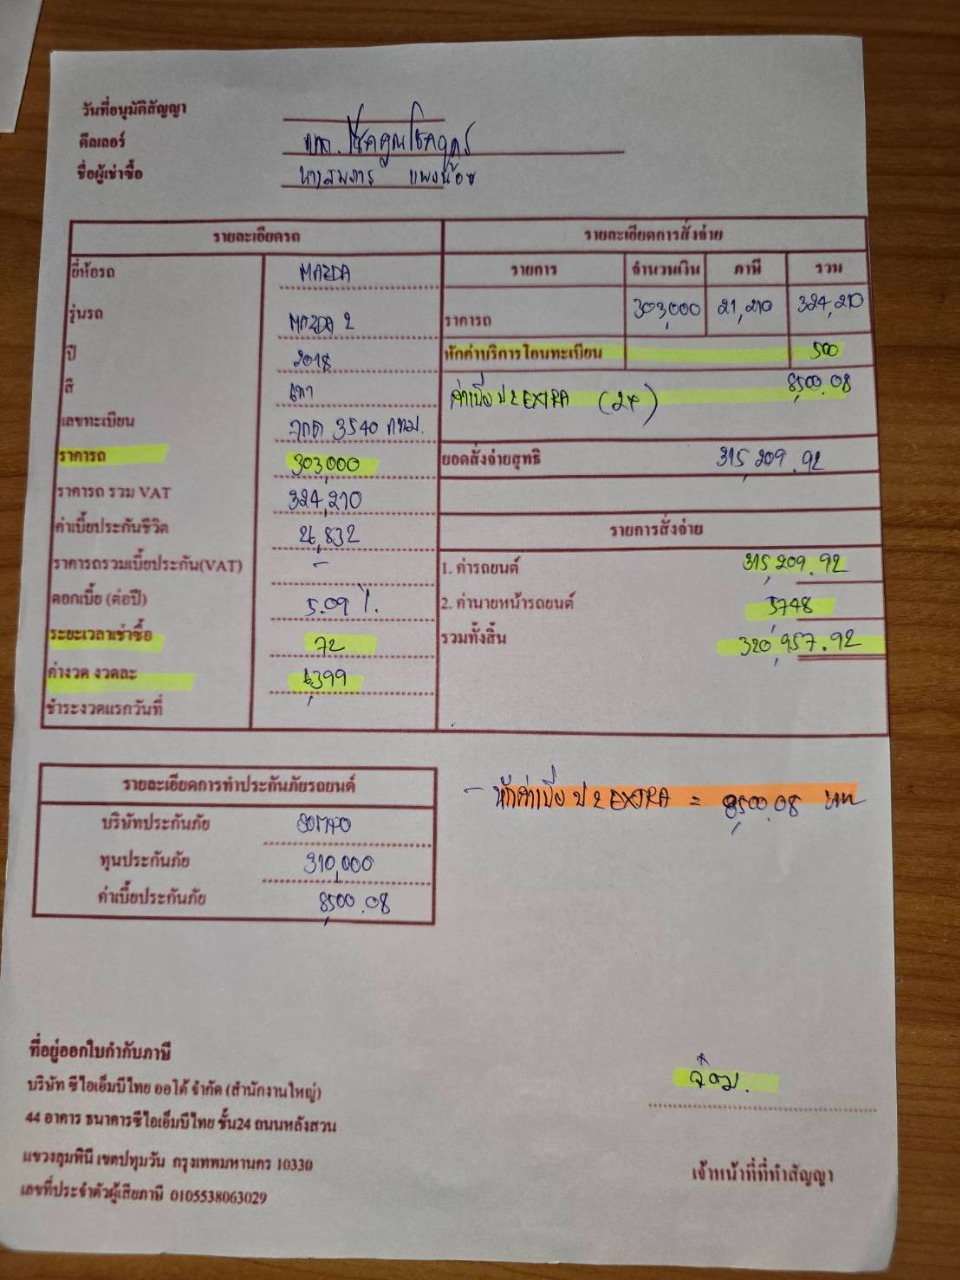 วันที่อนุมัติสัญญา
ดีลเลอร์ บจก. โชคคูณโชค
ชื่อผู้เช่าซื้อ แพงน้อย
รายละเอียดรถ
ยี่ห้อรถ MAZDA
รุ่นรถ MAZDA 2
ปี 2018
สี เทา
เลขทะเบียน 3540 กทม.
ราคารถ 303,000
ราคารถ รวม VAT 324,210
ค่าเบี้ยประกันชีวิต
ราคารถรวมเบี้ยประกัน(VAT) -
ดอกเบี้ย (ต่อปี) 5.09 %
ระยะเวลาเช่าซื้อ 72
ค่างวด งวดละ 6,399
ชำระงวดแรกวันที่
รายละเอียดการสั่งจ่าย
รายการ จำนวนเงิน ภาษี รวม
ราคารถ 303,000 21,210 324,210
หักค่าบริการโอนทะเบียน 500
ค่าเบี้ย ป 2 EXTRA 8,500.08
ยอดสั่งจ่ายสุทธิ 315,209.92
รายการสั่งจ่าย
1. ค่ารถยนต์ 315,209.92
2. ค่านายหน้ารถยนต์ 5,748
รวมทั้งสิ้น 320,957.92
รายละเอียดการทำประกันภัยรถยนต์
บริษัทประกันภัย
ทุนประกันภัย 310,000
ค่าเบี้ยประกันภัย 8,500.08
- หักค่าเบี้ย ป 2 EXTRA = 8,500.08 บาท
ที่อยู่ออกใบกำกับภาษี
บริษัท ซีไอเอ็มบีไทย ออโต้ จำกัด (สำนักงานใหญ่)
44 อาคาร ธนาคารซีไอเอ็มบีไทย ชั้น24 ถนนหลังสวน
แขวงลุมพินี เขตปทุมวัน กรุงเทพมหานคร 10330
เลขที่ประจำตัวผู้เสียภาษี 0105538063029
เจ้าหน้าที่ที่ทำสัญญา